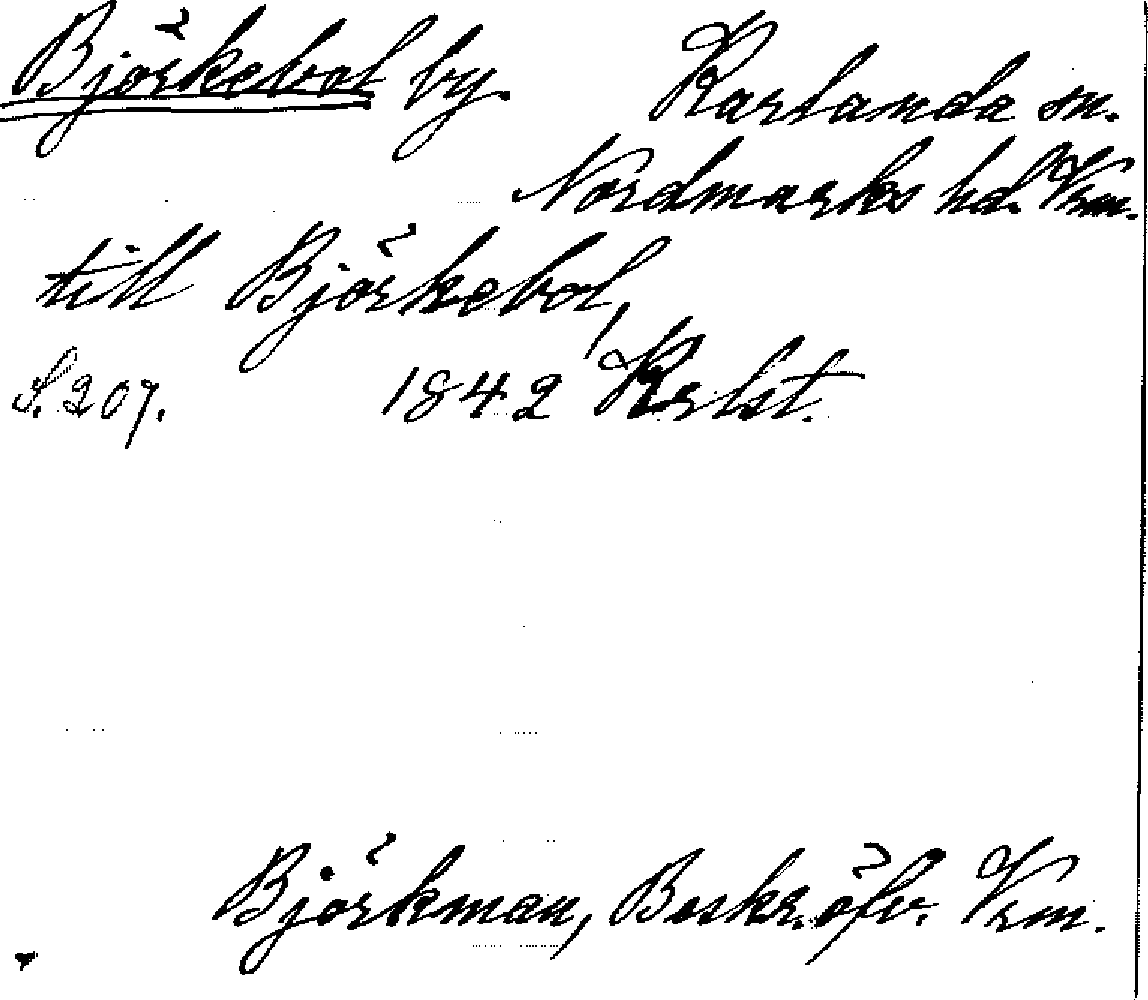 Björkebol by. Karlanda sn.
Nordmarks hd. Vrm.
till Björkebol,
S. 207. 1842 Krlst.
Björkman, Beskr. öfv. Vrm.